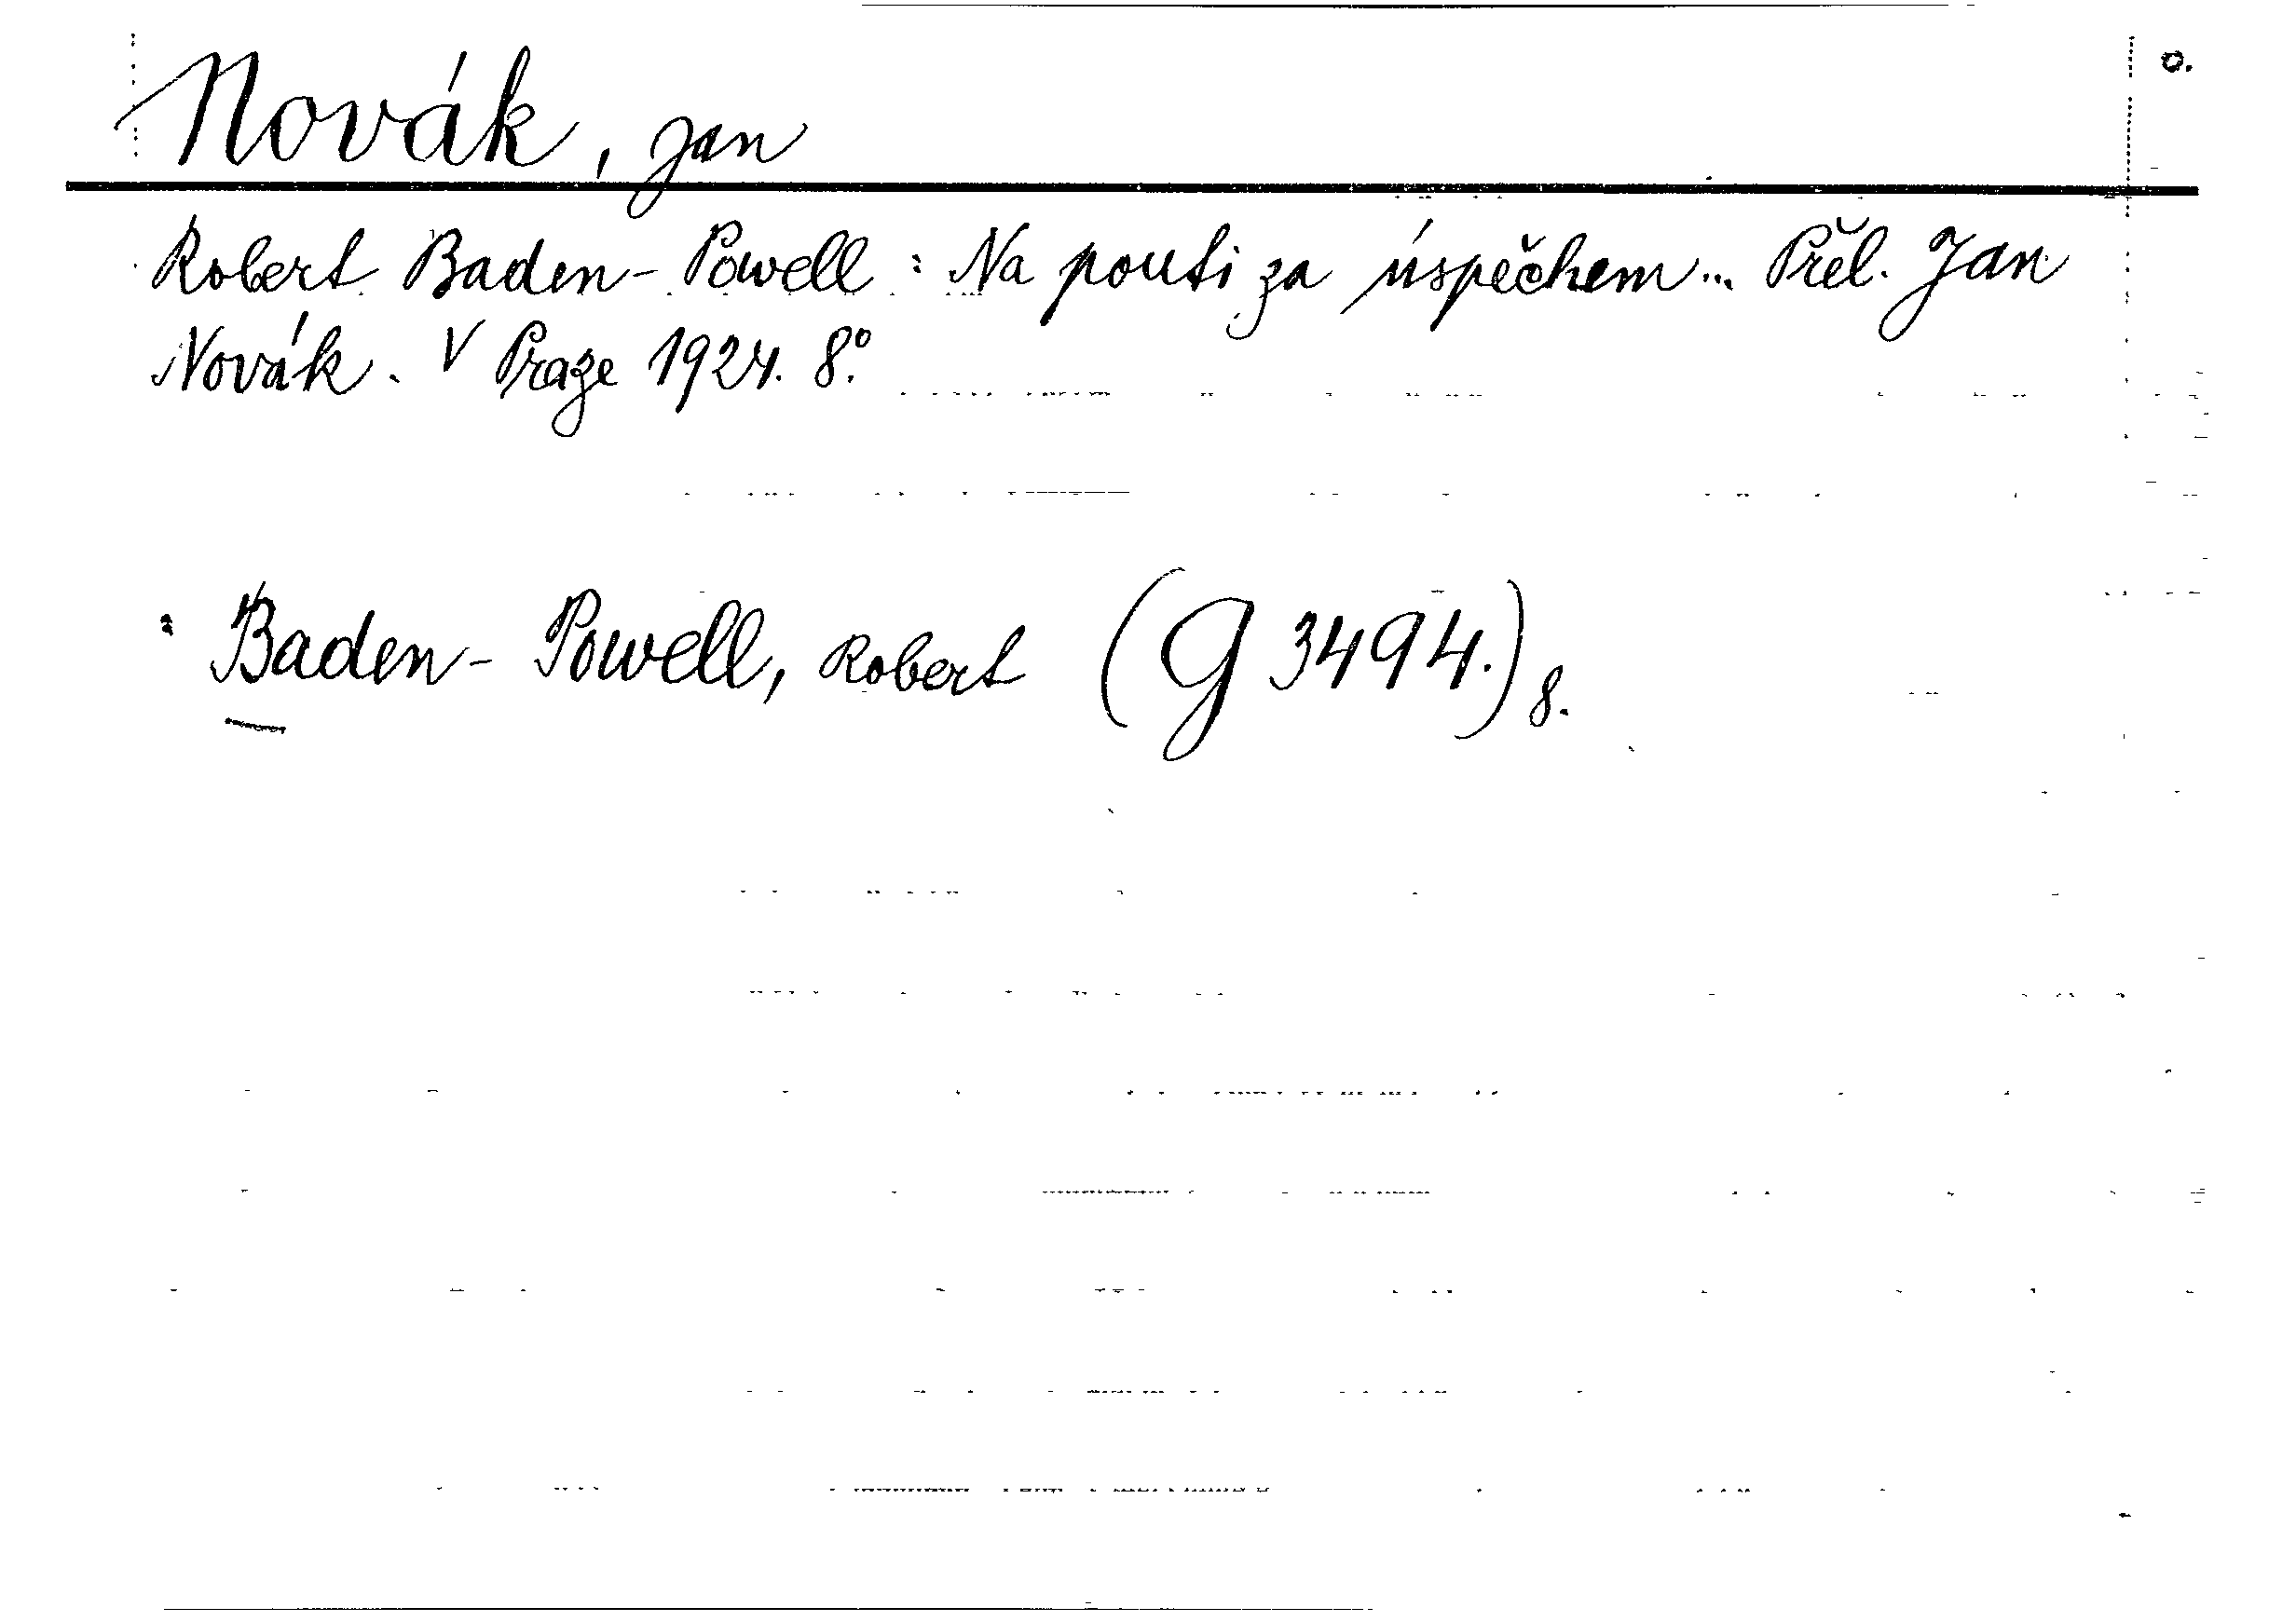 o.
Novák, Jan
Robert Baden-Powell: Na pouti za úspěchem... Přel. Jan
Novák. V Praze 1924. 8°.
: Baden-Powell, Robert (G 3494.) 8.